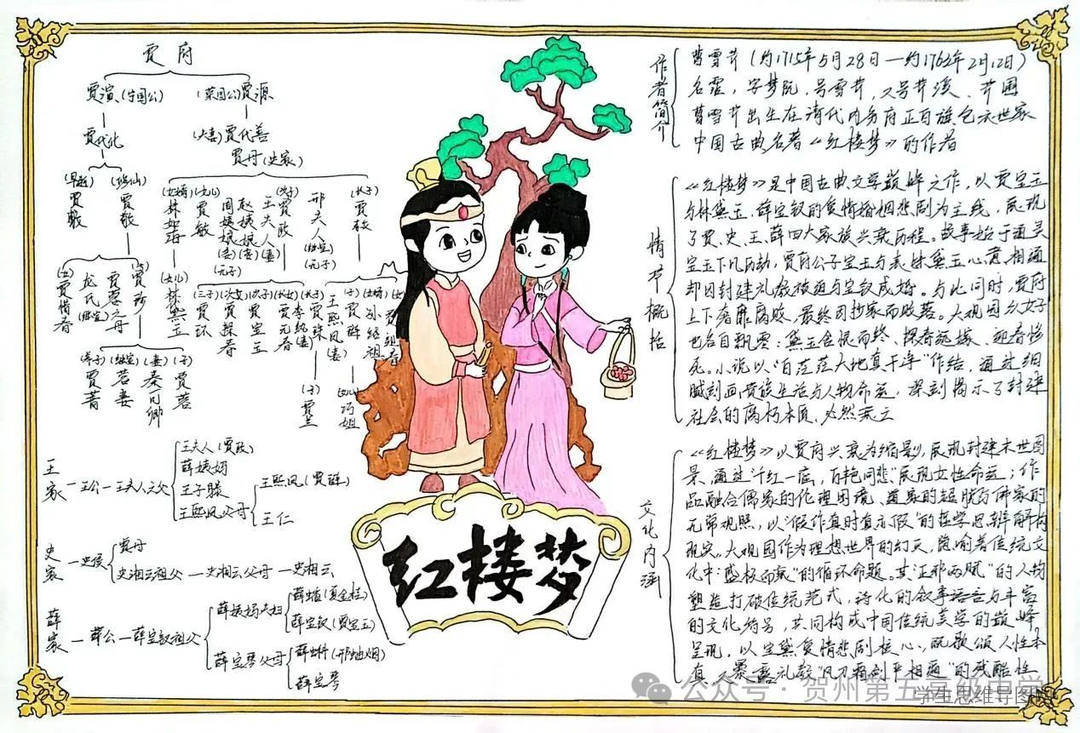 贾府
贾演(宁国公) (荣国公)贾源
贾代化 (大善)贾代善
贾母(史家)
(早夭)贾敷 (修仙)贾敬 (女婿)林如海 (幺儿)贾敏 周姨娘(妾) 赵姨娘(妾) 王夫人 (次子)贾政 邢夫人(继室) (长子)贾赦
(五)贾惜春 尤氏(继室) 贾蓉之母 贾珍 (女儿)林黛玉 (三子)贾环 (次女)贾探春 (次子)贾宝玉 (长女)贾元春 李纨(妻) (长子)贾珠 王熙凤(妻) (子)贾琏 (女婿)孙绍祖 (女)贾迎春
(养子)贾菁 (继室)若妻 (妻)秦可卿 (子)贾蓉 (子)贾兰 (女儿)巧姐
王家 王公 王夫人之父
王夫人(贾政)
薛姨妈
王子腾
王熙凤父母
王熙凤(贾琏)
王仁
史家 史侯
贾母
史湘云祖父 史湘云父母 史湘云
薛家 薛公 薛宝钗祖父
薛姨妈夫妇
薛蟠(夏金桂)
薛宝钗(贾宝玉)
薛宝琴父母
薛蝌(邢岫烟)
薛宝琴
红楼梦
作者简介
曹雪芹(约1715年5月28日—约1763年2月12日)
名霑,字梦阮,号雪芹,又号芹溪、芹圃
曹雪芹出生在清代内务府正白旗包衣世家
中国古典名著《红楼梦》的作者
情节概括
《红楼梦》是中国古典文学巅峰之作,以贾宝玉
与林黛玉、薛宝钗的爱情婚姻悲剧为主线,展现
了贾、史、王、薛四大家族兴衰历程。故事始于通灵
宝玉下凡历劫,贾府公子宝玉与表妹黛玉心意相通
却因封建礼教被迫与宝钗成婚。与此同时,贾府
上下奢靡腐败,最终因抄家而败落。大观园众女子
也各自飘零:黛玉含恨而终、探春远嫁、迎春惨
死。小说以"白茫茫大地真干净"作结,通过细
腻刻画贵族生活与人物命运,深刻揭示了封建
社会的腐朽本质,必然衰亡
文化内涵
《红楼梦》以贾府兴衰为缩影,展现封建末世图
景,通过"千红一窟,万艳同悲"展现女性命运;作
品融合儒家的伦理困境、道家的超脱与佛家的
无常观照,以"假作真时真亦假"的哲学思辨解构
现实。大观园作为理想世界的幻灭,隐喻着传统文
化中"盛极而衰"的循环命题。其"正邪两赋"的人物
塑造打破传统范式,诗化的叙事语言与丰富
的文化符号,共同构成中国传统美学的巅峰
呈现,以宝黛爱情悲剧核心,既歌颂人性本
真,又暴露礼教"风刀霜剑严相逼"的残酷性
公众号·贺州第五高级中学
学生思维导图